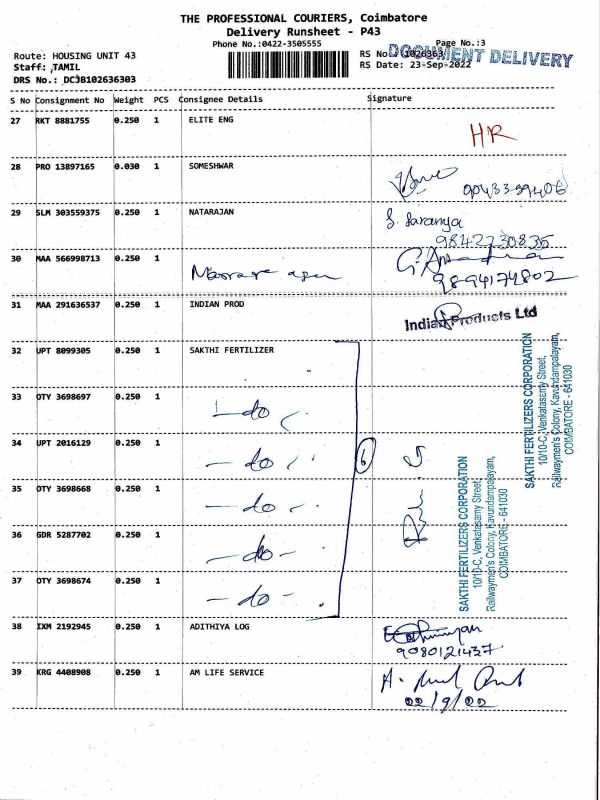 THE PROFESSIONAL COURIERS, Coimbatore
Delivery Runsheet - P43
Phone No.:0422-3505555
Page No.:3
Route: HOUSING UNIT 43
RS No.: 1026363
DOCUMENT DELIVERY
Staff: TAMIL
RS Date: 23-Sep-2022
DRS No.: DC3B102636303
S No Consignment No Weight PCS Consignee Details Signature
27 RKT 8881755 0.250 1 ELITE ENG
HR
28 PRO 13897165 0.030 1 SOMESHWAR
29 SLM 303559375 0.250 1 NATARAJAN
S. Saranya
9842730835
30 MAA 566998713 0.250 1
9894174802
31 MAA 291636537 0.250 1 INDIAN PROD
Indian Products Ltd
32 UPT 8099305 0.250 1 SAKTHI FERTILIZER
33 OTY 3698697 0.250 1
- do
34 UPT 2016129 0.250 1
- do
6
35 OTY 3698668 0.250 1
- do -
36 GDR 5287702 0.250 1
- do -
37 OTY 3698674 0.250 1
- do -
SAKTHI FERTILIZERS CORPORATION
10/10-C, Venkatasamy Street,
Railwaymen's Colony, Kavundampalayam,
COIMBATORE - 641030
SAKTHI FERTILIZERS CORPORATION
10/10-C, Venkatasamy Street,
Railwaymen's Colony, Kavundampalayam,
COIMBATORE - 641030
38 IXM 2192945 0.250 1 ADITHIYA LOG
9080121437
39 KRG 4408908 0.250 1 AM LIFE SERVICE
22/9/22